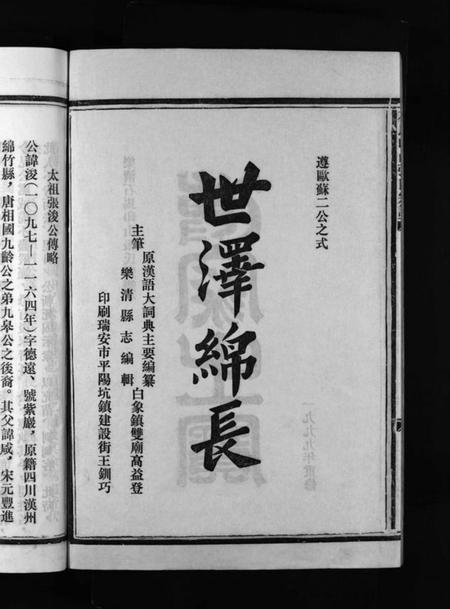 遵歐蘇二公之式
世澤綿長
原漢語大詞典主要編纂
主筆
樂清縣志編輯
白象鎮雙廟高益登
印刷瑞安市平陽坑鎮建設街王釧巧
太祖張浚公傳略
公諱浚（一〇九七—一一六四年）字德遠、號紫巖，原籍四川漢州
綿竹縣，唐相國九齡公之弟九皋公之後裔。其父諱咸，宋元豐進